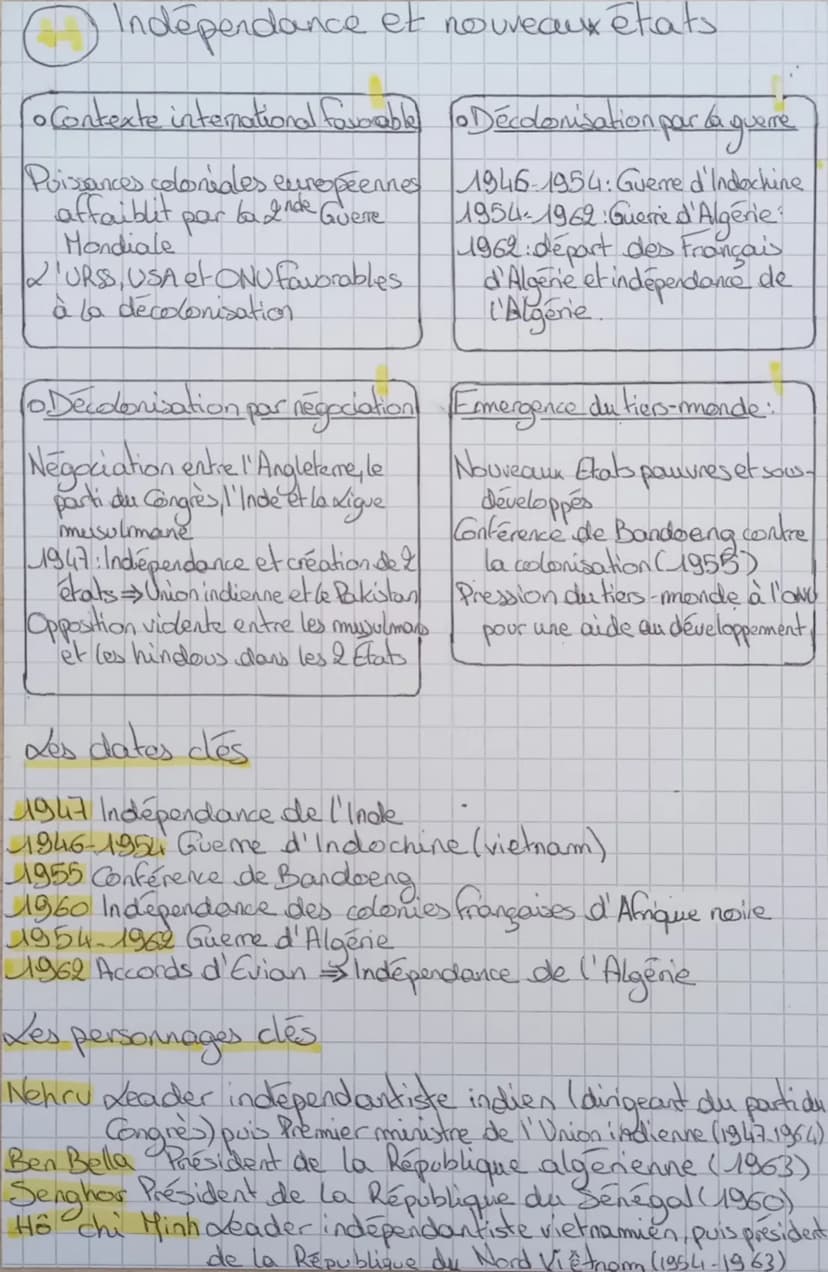 H Indépendance et nouveaux états
o Contexte international favorable
Puissances coloniales européennes
affaiblit par la 2nde Guerre
Mondiale
L'URSS, USA et ONU favorables
à la décolonisation
o Décolonisation par la guerre
1946-1954 : Guerre d'Indochine
1954-1962 : Guerre d'Algérie :
1962 : départ des Français
d'Algérie et indépendance de
l'Algérie.
o Décolonisation par négociation
Négociation entre l'Angleterre, le
parti du Congrès, l'Inde et la Ligue
musulmane
1947 : Indépendance et création de 2
états ⇒ Union indienne et le Pakistan
Opposition violente entre les musulmans
et les hindous dans les 2 États
Emergence du tiers-monde :
Nouveaux Etats pauvres et sous-
développés
Conférence de Bandoeng contre
la colonisation (1955)
Pression du tiers-monde à l'ONU
pour une aide au développement
Les dates clés
1947 Indépendance de l'Inde
1946-1954 Guerre d'Indochine (vietnam)
1955 Conférence de Bandoeng
1960 Indépendance des colonies françaises d'Afrique noire
1954-1962 Guerre d'Algérie
1962 Accords d'Evian ⇒ Indépendance de l'Algérie
Les personnages clés
Nehru Leader indépendantiste indien (dirigeant du parti du
Congrès) puis Premier ministre de l'Union indienne (1947-1964)
Ben Bella Président de la République algérienne (1963)
Senghor Président de la République du Sénégal (1960)
Hô chi Minh Leader indépendantiste vietnamien, puis président
de la République du Nord Viêtnam (1954-1963)